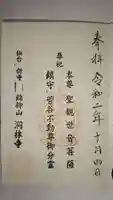 奉拝 令和二年十月四日
本尊 聖観世音菩薩
鎮守 岩谷不動尊御分霊
仙台
錦神山 洞林寺